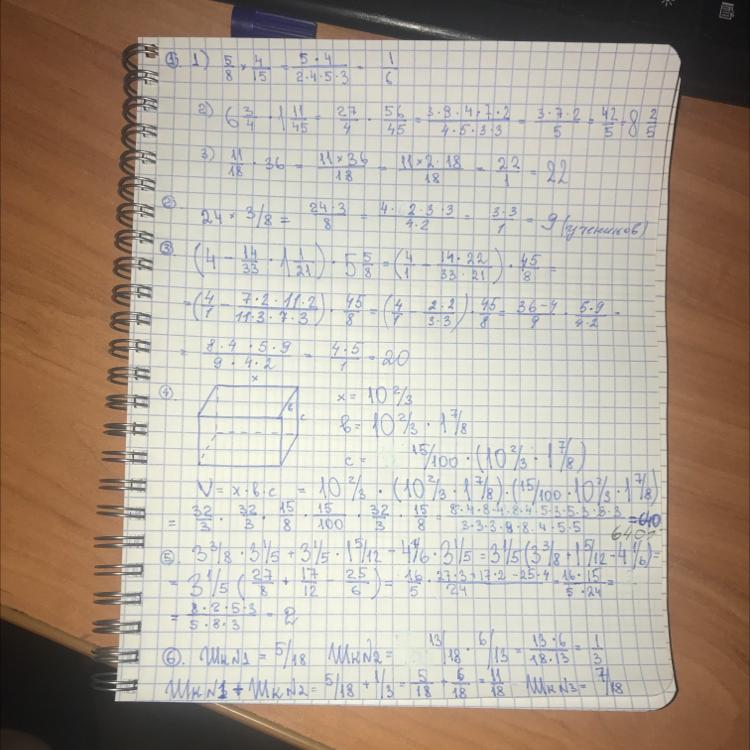 ① 1) 5/8 × 4/15 = 5·4/2·4·5·3 = 1/6
2) 6 3/4 · 1 11/45 = 27/4 · 56/45 = 3·9·4·7·2/4·5·3·3 = 3·7·2/5 = 42/5 = 8 2/5
3) 11/18 · 36 = 11×36/18 = 11×2·18/18 = 22/1 = 22
② 24 × 3/8 = 24·3/8 = 4·2·3·3/4·2 = 3·3/1 = 9 (учеников)
③ (4 − 14/33 · 1 1/21) · 5 5/8 = (4/1 − 14·22/33·21) · 45/8 =
= (4/1 − 7·2·11·2/11·3·7·3) · 45/8 = (4/1 − 2·2/3·3) · 45/8 = 36−4/9 · 5·9/4·2 =
= 8·4·5·9/9·4·2 = 4·5/1 = 20
④ x
в
c
x = 10 2/3
в = 10 2/3 · 1 7/8
c = 15/100 · (10 2/3 · 1 7/8)
V = x·в·c = 10 2/3 · (10 2/3 · 1 7/8) · (15/100 · 10 2/3 · 1 7/8)
= 32/3 · 32/3 · 15/8 · 15/100 · 32/3 · 15/8 = 8·4·8·4·8·4·5·3·5·3·3·3/3·3·3·8·8·4·5·5 = 640
640
⑤. 3 3/8 · 3 1/5 + 3 1/5 · 1 5/12 − 4 1/6 · 3 1/5 = 3 1/5 (3 3/8 + 1 5/12 − 4 1/6) =
= 3 1/5 (27/8 + 17/12 − 25/6) = 16/5 · 27·3+17·2−25·4/24 = 16·15/5·24 =
= 8·2·5·3/5·8·3 = 2
⑥. Шк№1 = 5/18 Шк№2 = 13/18 · 6/13 = 13·6/18·13 = 1/3
Шк№1 + Шк№2 = 5/18 + 1/3 = 5/18 + 6/18 = 11/18 Шк№3 = 7/18